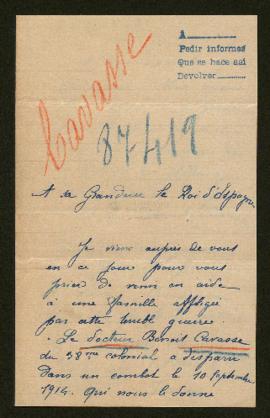 A
Pedir informes
Que se hace así
Devolver
Cavasse
87419
A sa Grandeur le Roi d'Espagne
Je viens auprès de vous
en ce jour pour vous
prier de venir en aide
à une famille affligée
par cette terrible guerre.
Le docteur Benoit Cavasse
du 38me colonial a disparu
Dans un combat le 10 Septembre
1914. Qui nous le donne